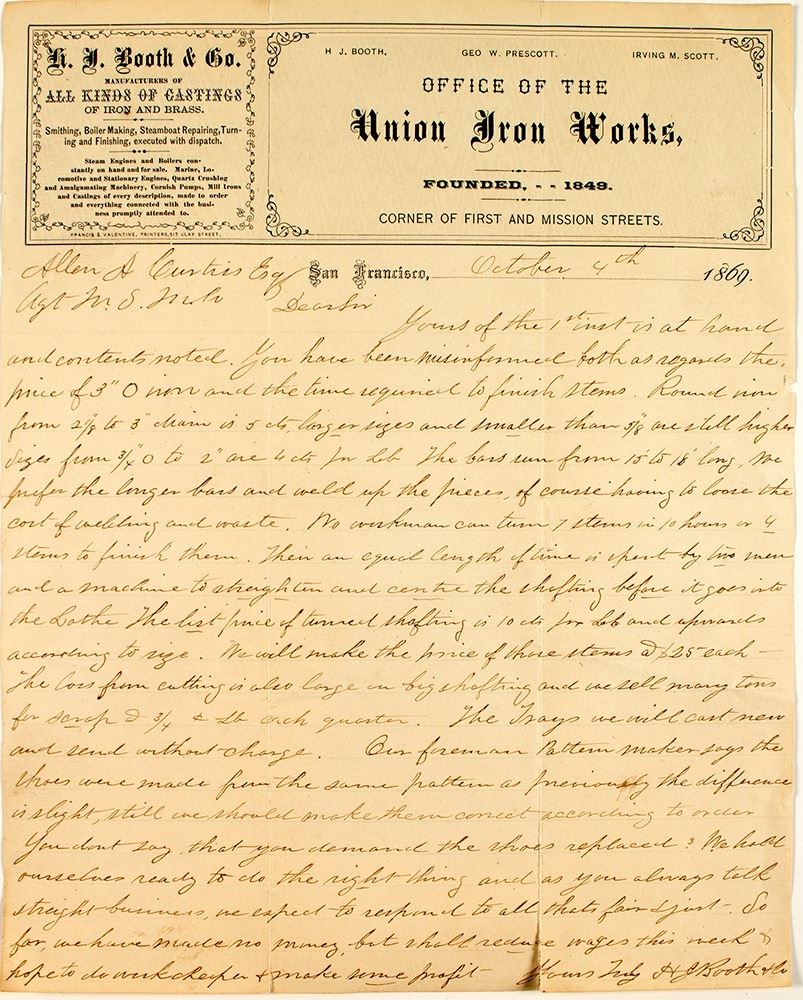 H. J. Booth & Co.
MANUFACTURERS OF
ALL KINDS OF CASTINGS
OF IRON AND BRASS.
Smithing, Boiler Making, Steamboat Repairing, Turn-
ing and Finishing, executed with dispatch.
Steam Engines and Boilers con-
stantly on hand and for sale. Marine, Lo-
comotive and Stationary Engines, Quartz Crushing
and Amalgamating Machinery, Cornish Pumps, Mill Irons
and Castings of every description, made to order
and everything connected with the busi-
ness promptly attended to.
FRANCIS & VALENTINE, PRINTERS, 517 CLAY STREET.
H J. BOOTH. GEO W. PRESCOTT. IRVING M. SCOTT.
OFFICE OF THE
Union Iron Works,
FOUNDED, - - 1849.
CORNER OF FIRST AND MISSION STREETS.
San Francisco, October 4th 1869.
Allen A Curtiss Esq
Agt M. S. M. Co
Dear Sir
Yours of the 1st inst is at hand
and contents noted. You have been misinformed both as regards the
price of 3" O iron and the time required to finish stems. Round iron
from 2⅛ to 3" diam is 5 cts, larger sizes and smaller than 5/8 are still higher
Sizes from ¾" O to 2" are 4 cts per Lb The bars run from 15 to 18' long, We
prefer the longer bars and weld up the pieces, of course having to loose the
cost of welding and waste. No workman can turn 7 stems in 10 hours or 4
stems to finish them. Then an equal length of time is spent by two men
and a machine to streighten and centre the shafting before it goes into
the Lathe The list price of turned shafting is 10 cts per Lb and upwards
according to size. We will make the price of those stems @ $25 each –
The loss from cutting is also large on big shafting and we sell many tons
for scrap @ ¾ ¢ Lb each quarter. The Trays we will cast new
and send without charge. Our foreman Pattern maker says the
shoes were made from the same pattern as previously the difference
is slight, still we should make them correct according to order
You dont say, that you demand the shoes replaced? We hold
ourselves ready to do the right thing and as you always talk
streight business, we expect to respond to all thats fair & just – So
far, we have made no money, but shall reduce wages this week &
hope to do work cheaper & make some profit Yours Truly H J Booth & Co